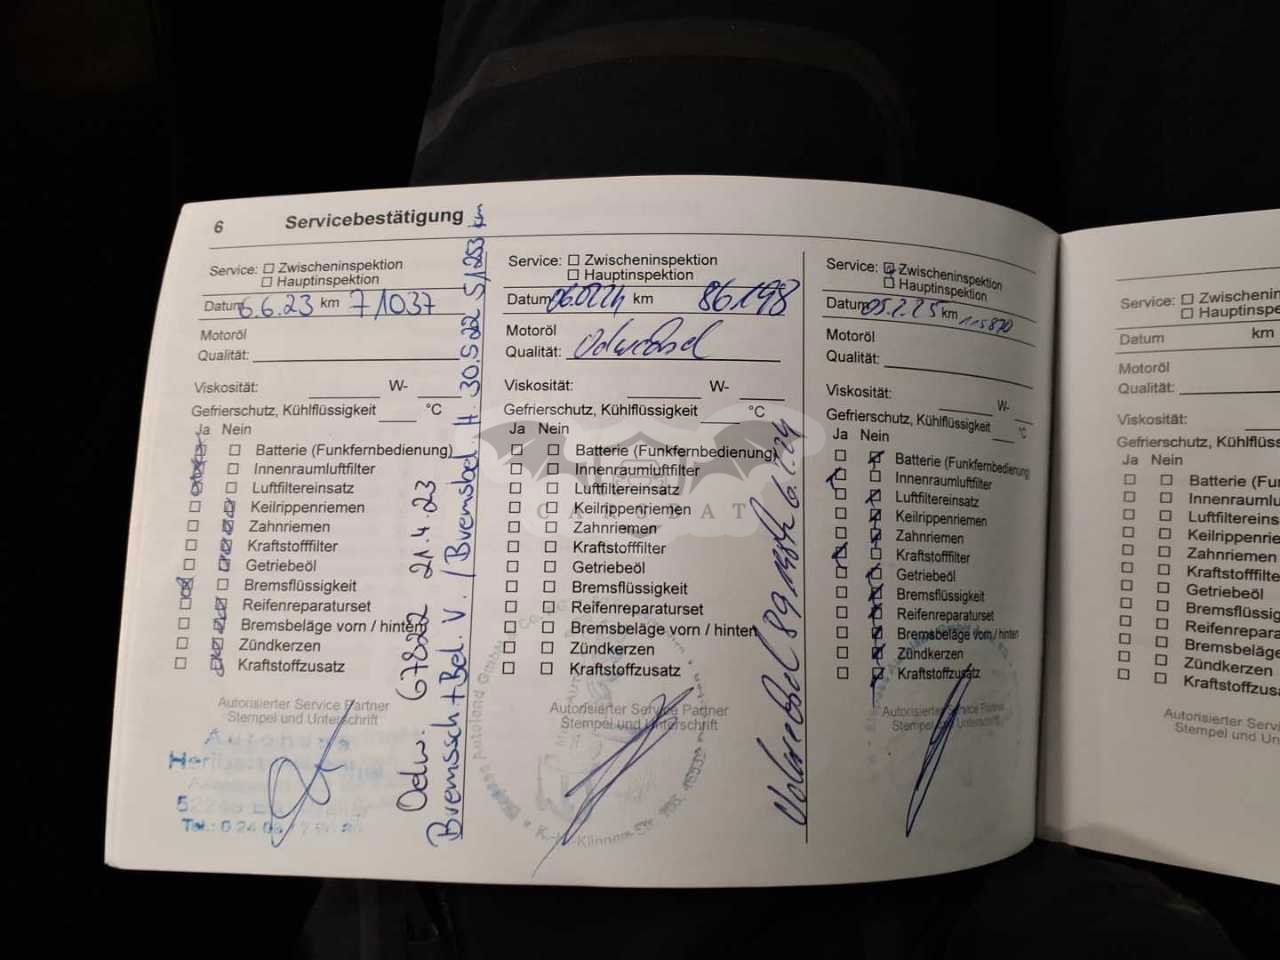 6 Servicebestätigung
Service: Zwischeninspektion
Hauptinspektion
Datum 6.6.23 km 71037
Motoröl
Qualität:
Viskosität: W-
Gefrierschutz, Kühlflüssigkeit °C
Ja Nein
Batterie (Funkfernbedienung)
Innenraumluftfilter
Luftfiltereinsatz
Keilrippenriemen
Zahnriemen
Kraftstofffilter
Getriebeöl
Bremsflüssigkeit
Reifenreparaturset
Bremsbeläge vorn / hinten
Zündkerzen
Kraftstoffzusatz
Autorisierter Service Partner
Stempel und Unterschrift
Ödw. 67822 21.4.23
Bremssch + Bel. V. / Bremsbel. H. 30.5.22 51253 km
Service: Zwischeninspektion
Hauptinspektion
Datum km 86198
Motoröl
Qualität: Ölwechsel
Viskosität: W-
Gefrierschutz, Kühlflüssigkeit °C
Ja Nein
Batterie (Funkfernbedienung)
Innenraumluftfilter
Luftfiltereinsatz
Keilrippenriemen
Zahnriemen
Kraftstofffilter
Getriebeöl
Bremsflüssigkeit
Reifenreparaturset
Bremsbeläge vorn / hinten
Zündkerzen
Kraftstoffzusatz
Autorisierter Service Partner
Stempel und Unterschrift
Ölwechsel
Service: Zwischeninspektion
Hauptinspektion
Datum 05.2.25 km 115870
Motoröl
Qualität:
Viskosität: W-
Gefrierschutz, Kühlflüssigkeit °C
Ja Nein
Batterie (Funkfernbedienung)
Innenraumluftfilter
Luftfiltereinsatz
Keilrippenriemen
Zahnriemen
Kraftstofffilter
Getriebeöl
Bremsflüssigkeit
Reifenreparaturset
Bremsbeläge vorn / hinten
Zündkerzen
Kraftstoffzusatz
Autorisierter Service Partner
Stempel und Unterschrift
Service: Zwischenin
Hauptinspe
Datum km
Motoröl
Qualität:
Viskosität:
Gefrierschutz, Kühlflüss
Ja Nein
Batterie (Fu
Innenraumlu
Luftfiltereins
Keilrippenrie
Zahnriemen
Kraftstofffilte
Getriebeöl
Bremsflüssig
Reifenrepara
Bremsbeläge
Zündkerzen
Kraftstoffzusa
Autorisierter Servic
Stempel und Unter
CAROBAT